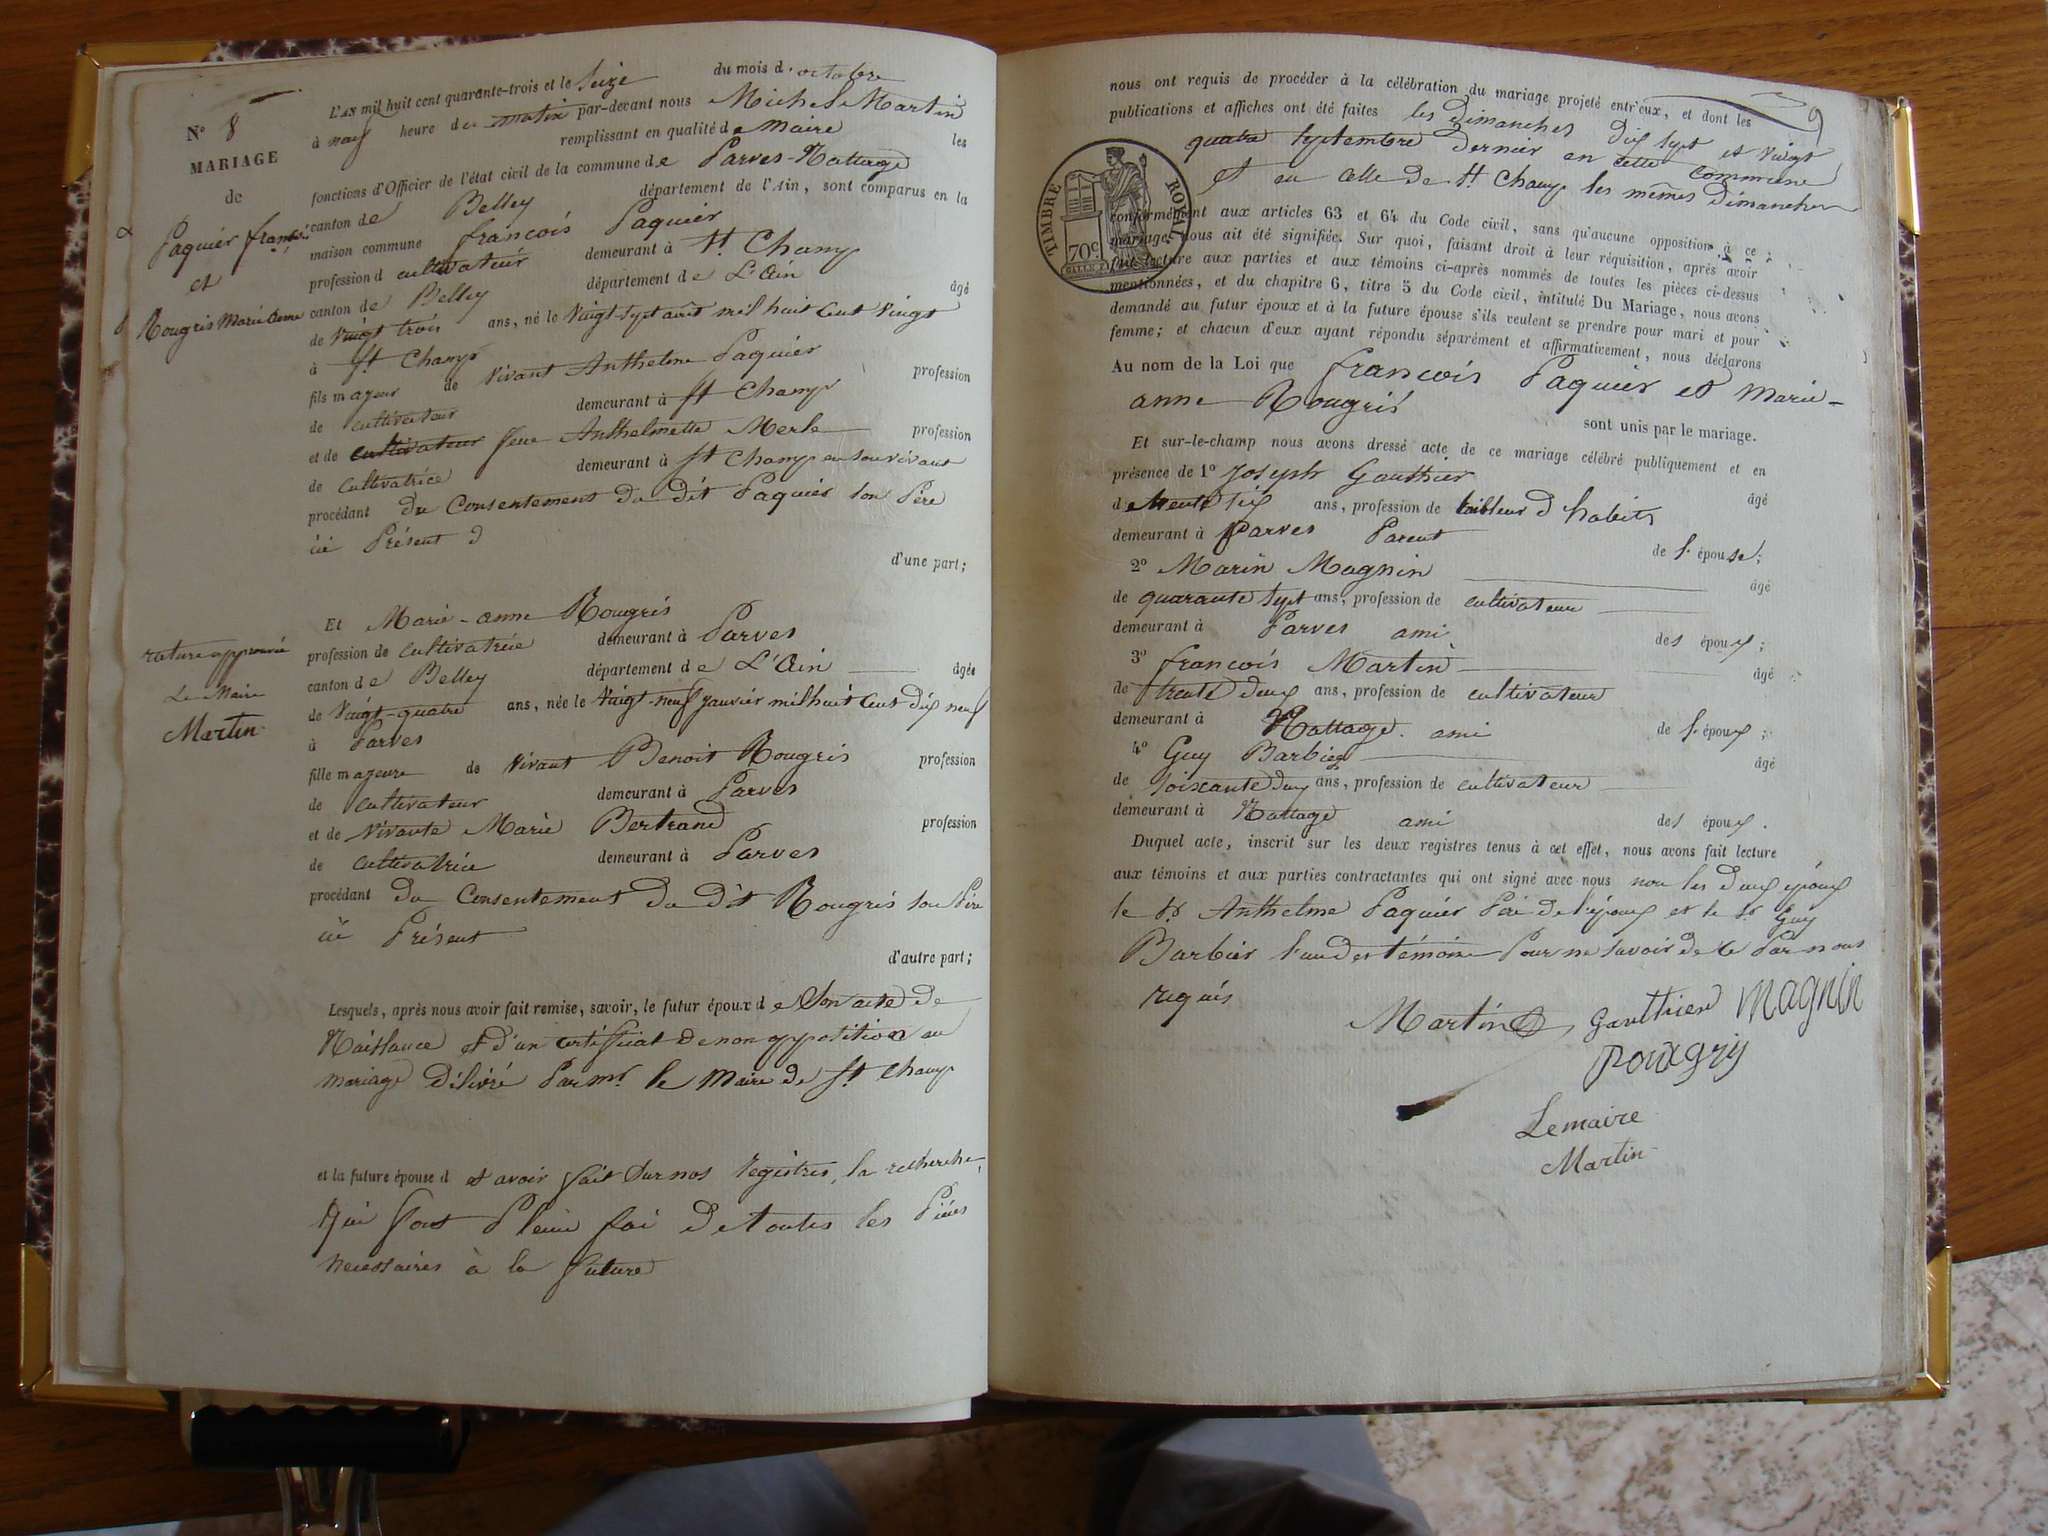 N° 8
MARIAGE
de
Paquier françois
et
Rougris Marie Anne
rature approuvée
Le Maire
Martin
L'AN mil huit cent quarante-trois et le Seize du mois d'octobre
à neuf heure du matin par-devant nous Michel Martin
remplissant en qualité de Maire les
fonctions d'Officier de l'état civil de la commune de Parves-Nattage
canton de Belley département de l'Ain, sont comparus en la
maison commune françois Paquier
profession d cultivateur demeurant à St. Champ
canton de Belley département de L'Ain âgé
de Vingt trois ans, né le Vingt-sept août mil huit Cent Vingt
à St Champ
fils majeur de vivant Anthelme Paquier profession
de cultivateur demeurant à St Champ
et de cultivateur feue Anthelmette Merle profession
de Cultivatrice demeurant à St Champ en son vivant
procédant du Consentement du dit Paquier son Père
ici Présent d
d'une part;
Et Marie-anne Rougris
profession de cultivatrice demeurant à Parves
canton de Belley département de L'Ain âgée
de Vingt-quatre ans, née le Vingt-neuf janvier mil huit Cent dix neuf
à Parves
fille majeure de Vivant Benoit Rougris profession
de cultivateur demeurant à Parves
et de Vivante Marie Bertrand profession
de cultivatrice demeurant à Parves
procédant du Consentement du dit Rougris son Père
ici Présent
d'autre part;
Lesquels, après nous avoir fait remise, savoir, le futur époux de Son acte de
Naissance et d'un certificat de non opposition au
mariage Délivré Par mr. le Maire de St. Champ
et la future épouse d et avoir fait Sur nos Registres, la recherche,
Qui font Pleine foi de toutes les Pièces
necessaires à la future
9
nous ont requis de procéder à la célébration du mariage projeté entr'eux, et dont les
publications et affiches ont été faites les Dimanches dix sept et vingt
quatre Septembre Dernier en cette Commune
et en celle de St. Champ les mêmes Dimanches
TIMBRE ROYAL
70c
conformément aux articles 63 et 64 du Code civil, sans qu'aucune opposition à ce
mariage nous ait été signifiée. Sur quoi, faisant droit à leur réquisition, après avoir
fait lecture aux parties et aux témoins ci-après nommés de toutes les pièces ci-dessus
mentionnées, et du chapitre 6, titre 5 du Code civil, intitulé Du Mariage, nous avons
demandé au futur époux et à la future épouse s'ils veulent se prendre pour mari et pour
femme; et chacun d'eux ayant répondu séparément et affirmativement, nous déclarons
Au nom de la Loi que françois Paquier et Marie-
anne Rougris
sont unis par le mariage.
Et sur-le-champ nous avons dressé acte de ce mariage célébré publiquement et en
présence de 1° Joseph Gauthier âgé
de trente six ans, profession de tailleur d'habits
demeurant à Parves Parent de l'épouse;
2° Marin Magnin âgé
de quarante sept ans, profession de cultivateur
demeurant à Parves ami des époux;
3° françois Martin âgé
de trente deux ans, profession de cultivateur
demeurant à Nattage. ami de l'époux;
4° Guy Barbier âgé
de soixante deux ans, profession de cultivateur
demeurant à Nattage ami des époux.
Duquel acte, inscrit sur les deux registres tenus à cet effet, nous avons fait lecture
aux témoins et aux parties contractantes qui ont signé avec nous non les deux époux
le Sr Anthelme Paquier Père de l'époux et le Sr Guy
Barbier l'un des témoins Pour ne savoir de ce Par nous
requis
Martin Gauthier Magnin
Rouxgriy
Lemaire
Martin